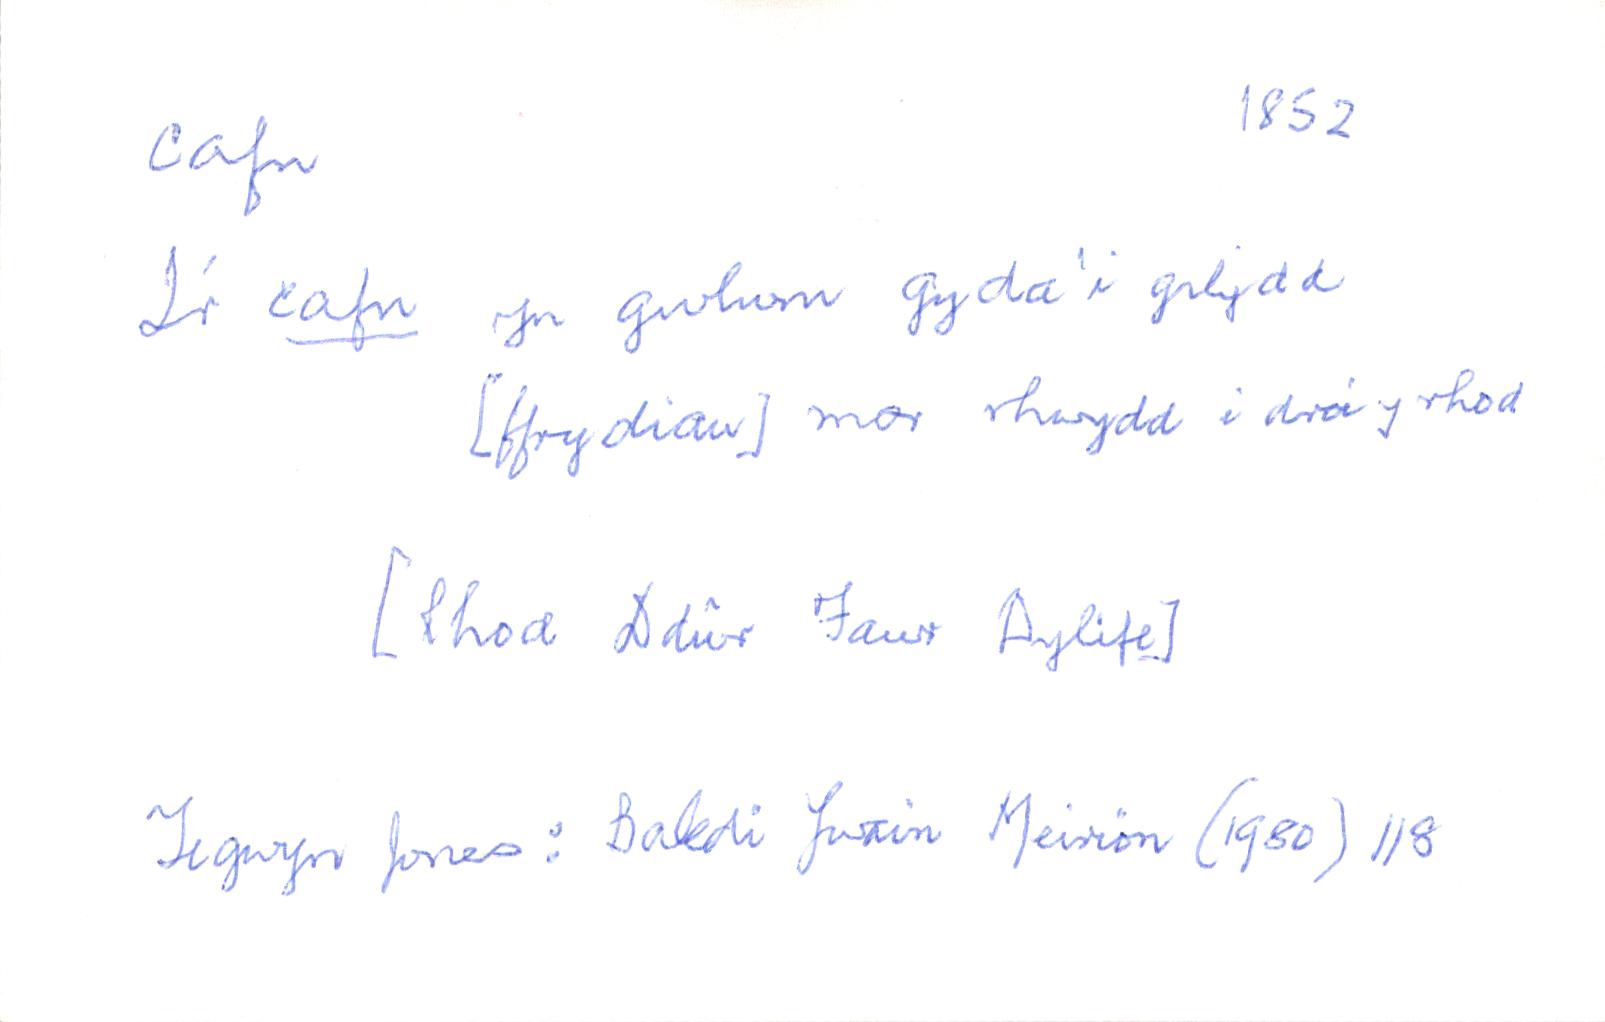 cafn
1852
I'r cafn yn gwlwm gyda'i gilydd
[ffrydiau] mor rhwydd i droi y rhod
[Rhod Ddŵr Fawr Dylife]
Tegwyn Jones: Baledi Ywain Meirion (1980) 118